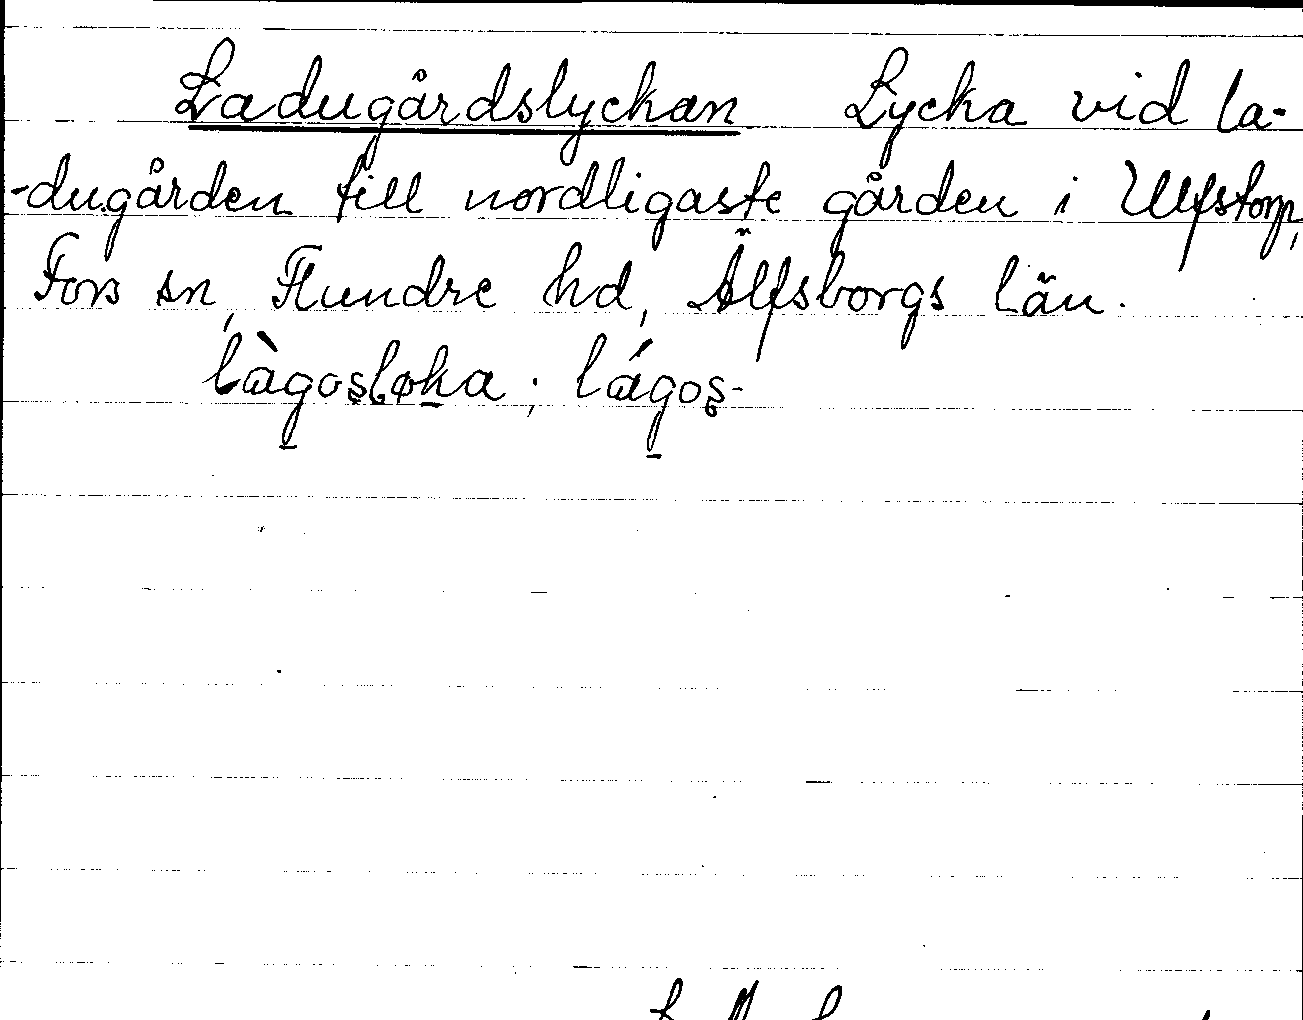 Ladugårdslyckan Lycka vid la-
-dugården till nordligaste gården i Ulfstorp,
Fors sn, Flundre hd, Älfsborgs län.
làgosløka ; lágos-